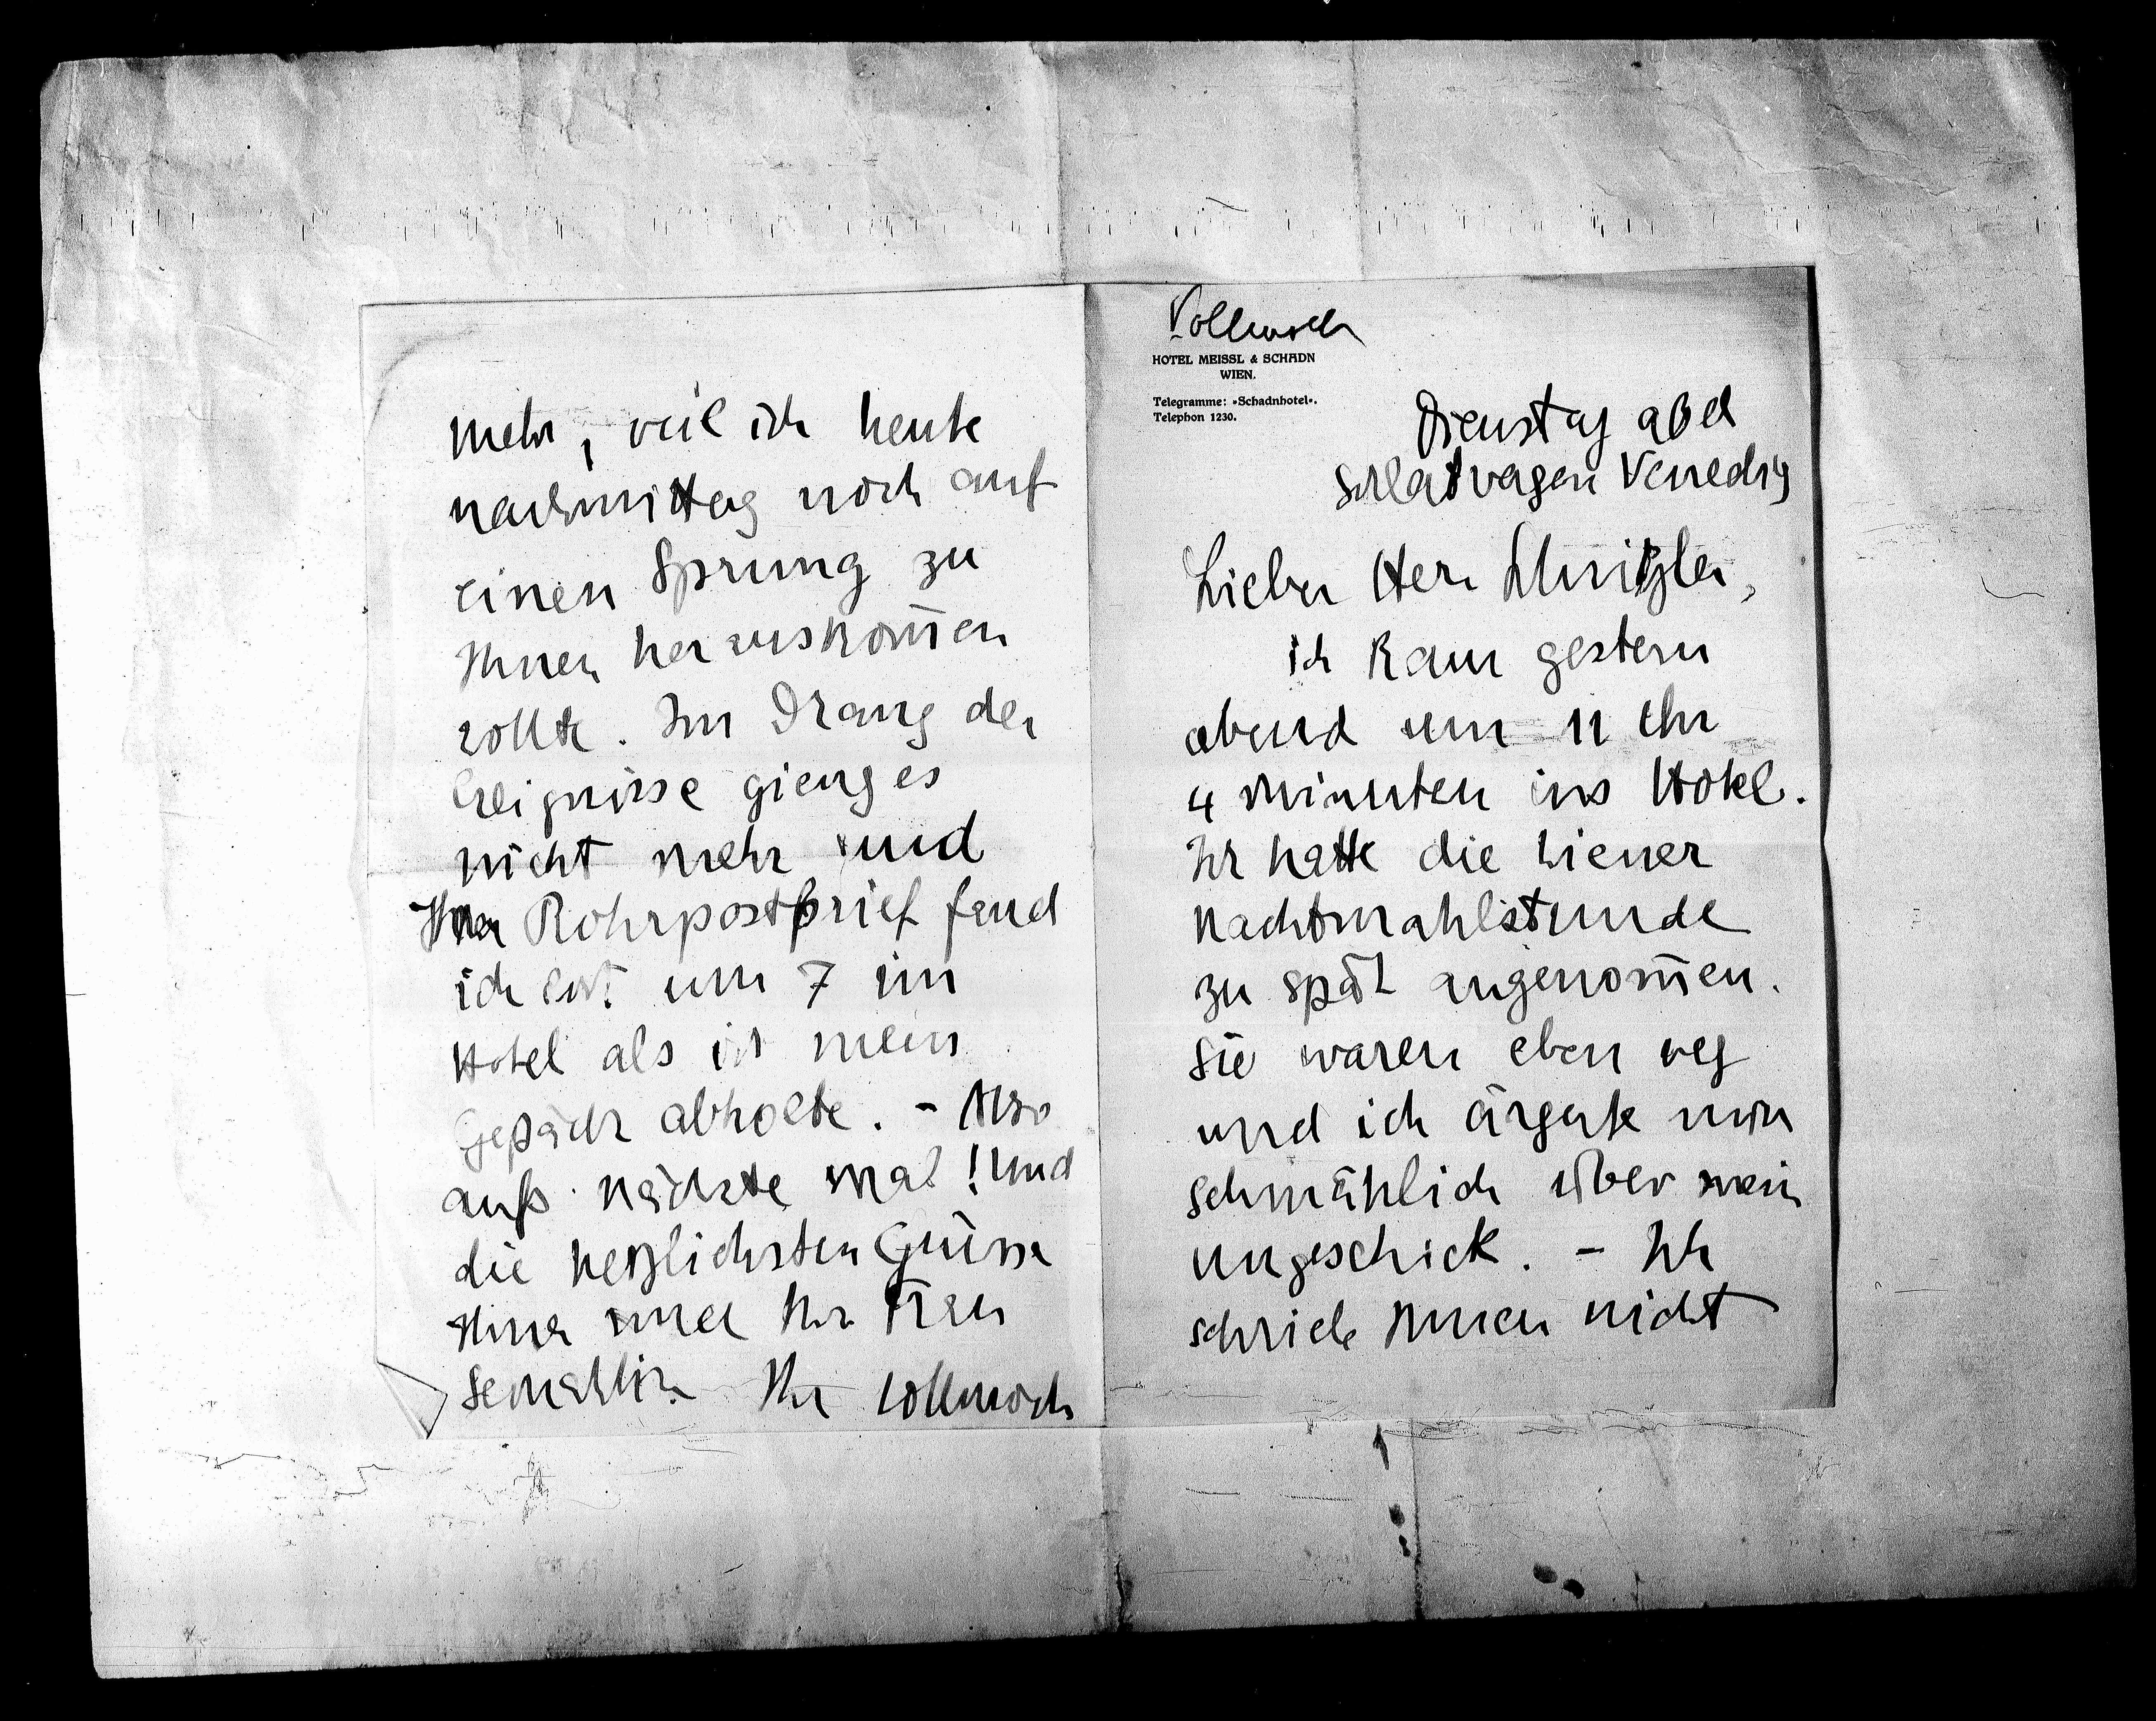 Vollmoeller
HOTEL MEISSL & SCHADN
WIEN.
Telegramme: «Schadnhotel».
Telephon 1230.
Dienstag abd
Schlafwagen Venedig
Lieber Herr Schnitzler,
ich kam gestern
abend um 11 Uhr
4 Minuten ins Hotel.
Ich hatte die Wiener
Nachtmahlstunde
zu spät angenom̄en.
Sie waren eben weg
und ich ärgerte mich
schmählich über mein
Ungeschick. – Ich
schrieb Ihnen nicht
mehr, weil ich heute
nachmittag noch auf
einen Sprung zu
Ihnen herauskom̄en
wollte. Im Drang der
Ereignisse gieng es
nicht mehr und
Ihren Rohrpostbrief fand
ich erst um 7 im
Hotel als ich mein
Gepäck abholte. – Also
aufs nächste Mal! Und
die herzlichsten Grüsse
Ihnen und Ihrer Frau
Gemahlin. Ihr Vollmoeller